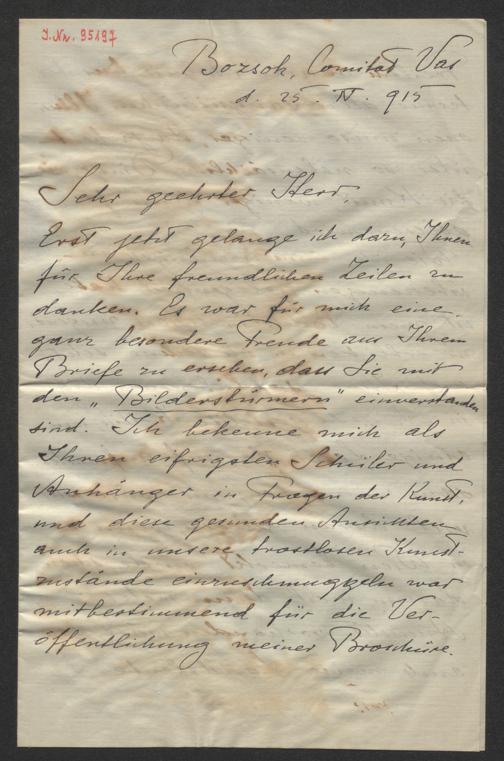 J. Nr. 95197
Bozsok, Comitat Vas
d. 25. IV. 915
Sehr geehrter Herr,
Erst jetzt gelange ich dazu, Ihnen
für Ihre freundlichen Zeilen zu
danken. Es war für mich eine
ganz besondere Freude aus Ihrem
Briefe zu ersehen, dass Sie mit
den „Bilderstürmern" einverstanden
sind. Ich bekenne mich als
Ihren eifrigsten Schüler und
Anhänger in Fragen der Kunst,
und diese gesunden Ansichten
auch in unsere trostlosen Kunst-
zustände einzuschmuggeln war
mitbestimmend für die Ver-
öffentlichung meiner Broschüre.